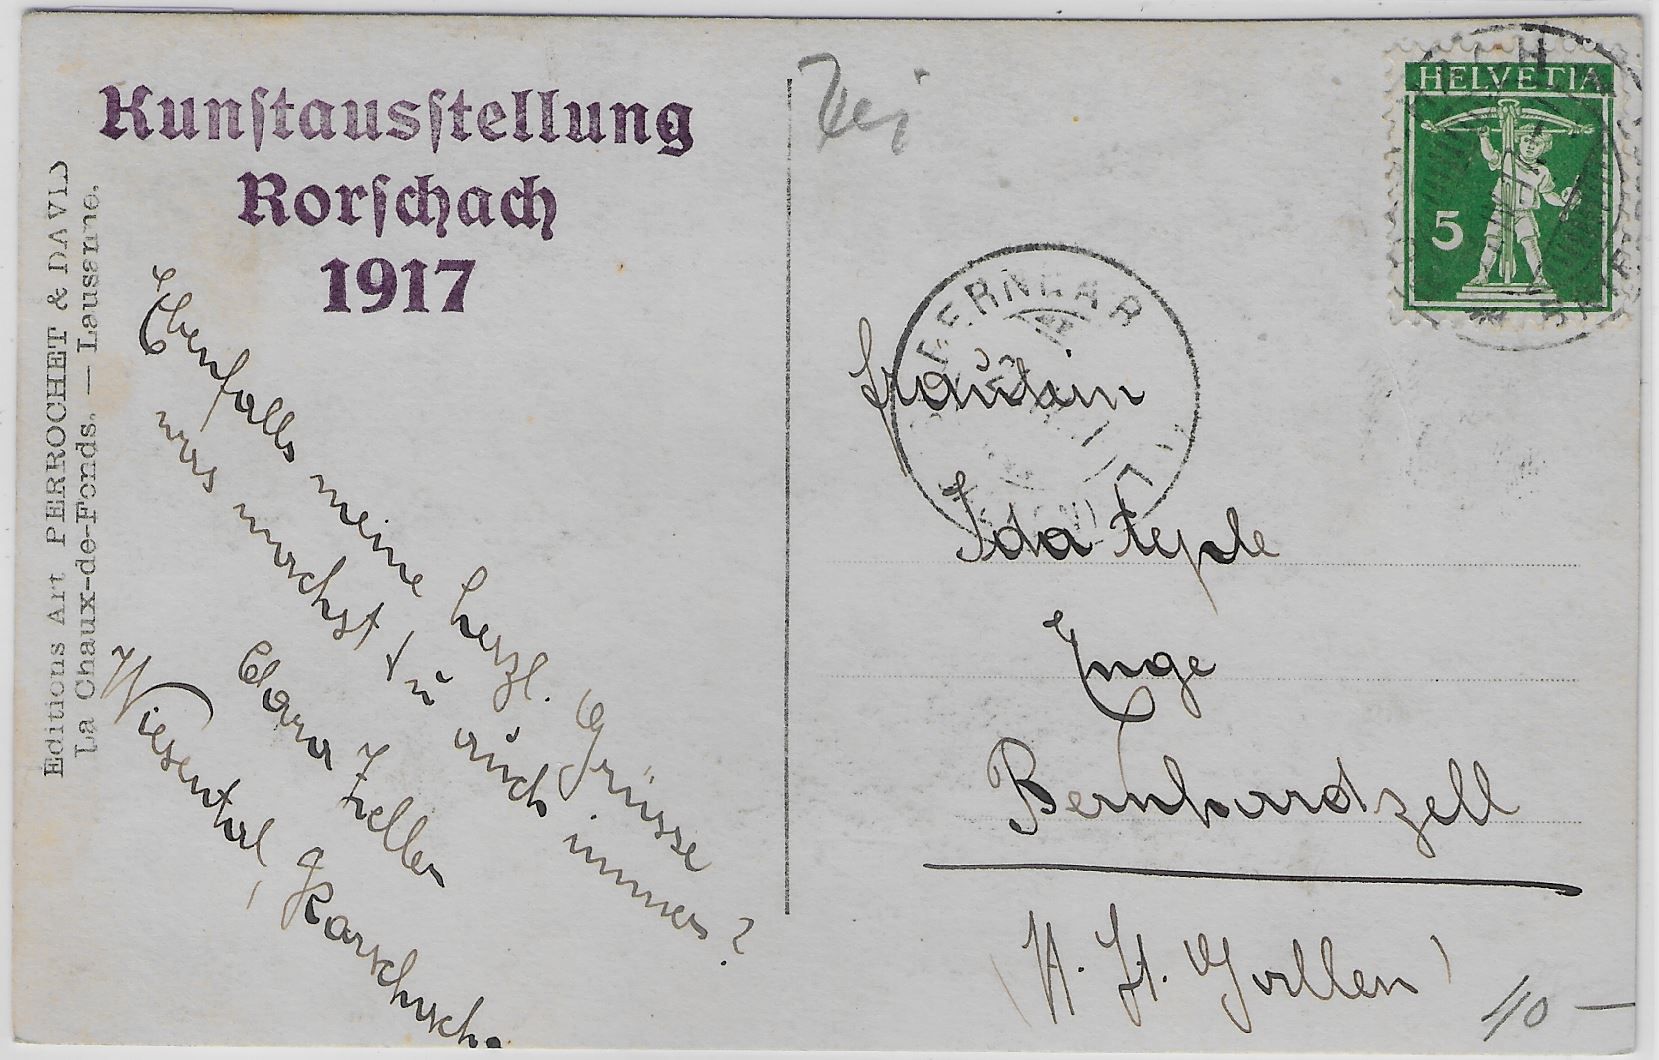 Kunstausstellung
Rorschach
1917
Editions Art PERROCHET & DAVID
La Chaux-de-Fonds. — Lausanne.
Ebenfalls meine herzl. Grüsse
was machst du auch immer?
Clara Zeller
Wiesental, Rorschach.
HELVETIA
5
Fräulein
Ida
Enge
Bernhardzell
(Kt. St. Gallen)